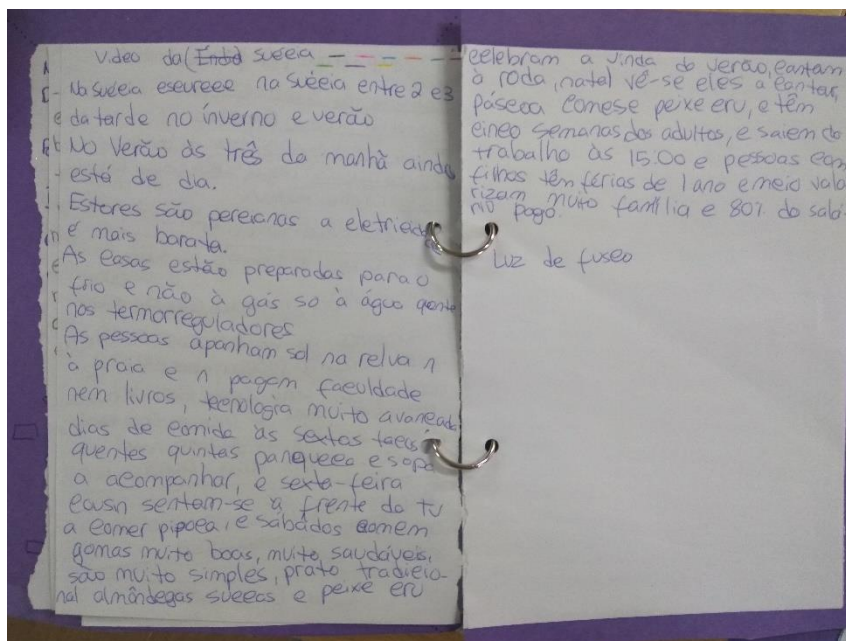 Video da (Endo) suécia
- Na suécia escurece na suécia entre 2 e 3
e da tarde no inverno e verão
No Verão às três da manhã ainda
está de dia.
Estores são percianas a eletricid
é mais barata.
As casas estão preparadas para o
frio e não à gás so à água quente
nos termorreguladores
As pessoas apanham sol na relva n
à praia e n pagam faculdade
nem livros, tecnologia muito avançada
dias de comida às sextas tacos
quentes quintas panqueca e sopa
a acompanhar, e sexta-feira
sentam-se à frente da tv
a comer pipoca, e sábados comem
gomas muito boas, muito saudáveis,
são muito simples, prato tradicio-
nal almôndegas suecas e peixe cru
celebram a vinda do verão, cantam
à roda, natal vê-se eles a cantar,
páscoa comese peixe cru, e têm
cinco semanas dos adultos, e saiem do
trabalho às 15:00 e pessoas com
filhos têm férias de 1 ano e meio valo
rizam muito família e 80% do salá-
rio pago.
Luz de fusco